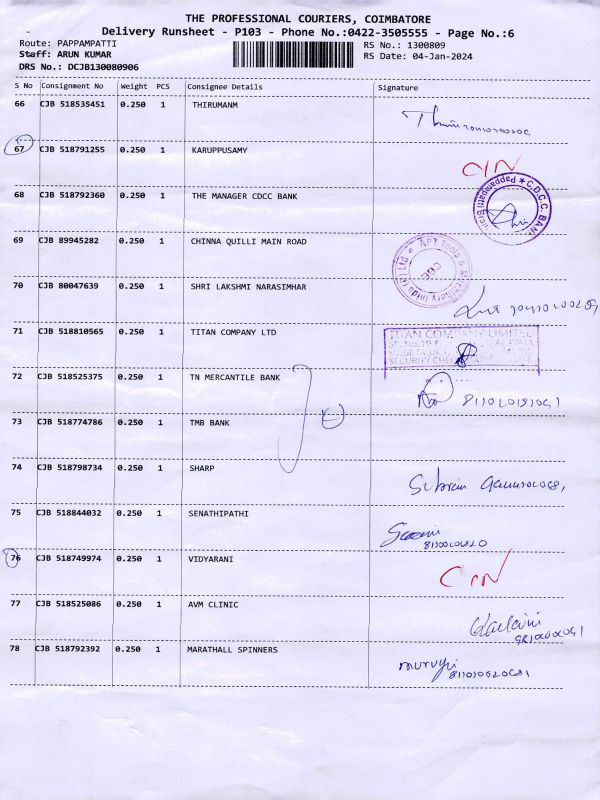 THE PROFESSIONAL COURIERS, COIMBATORE
Delivery Runsheet - P103 - Phone No.:0422-3505555 - Page No.:6
Route: PAPPAMPATTI RS No.: 1300809
Staff: ARUN KUMAR RS Date: 04-Jan-2024
DRS No.: DCJB130080906
S No Consignment No Weight PCS Consignee Details Signature
66 CJB 518535451 0.250 1 THIRUMANM
67 CJB 518791255 0.250 1 KARUPPUSAMY
68 CJB 518792360 0.250 1 THE MANAGER CDCC BANK
C.D.C.C. BANK
69 CJB 89945282 0.250 1 CHINNA QUILLI MAIN ROAD
70 CJB 80047639 0.250 1 SHRI LAKSHMI NARASIMHAR
71 CJB 518810565 0.250 1 TITAN COMPANY LTD
TITAN COMPANY LIMITED
72 CJB 518525375 0.250 1 TN MERCANTILE BANK
73 CJB 518774786 0.250 1 TMB BANK
74 CJB 518798734 0.250 1 SHARP
75 CJB 518844032 0.250 1 SENATHIPATHI
76 CJB 518749974 0.250 1 VIDYARANI
77 CJB 518525086 0.250 1 AVM CLINIC
78 CJB 518792392 0.250 1 MARATHALL SPINNERS